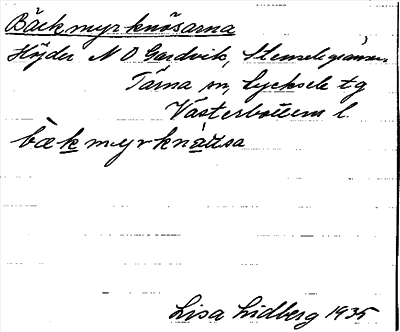 Bäckmyrknösarna
Höjder N O Gardvik, Stenselegränsen
Tärna sn, Lycksele tg
Västerbottens l.
bækmyrknåtsa
Lisa Lidberg 1935